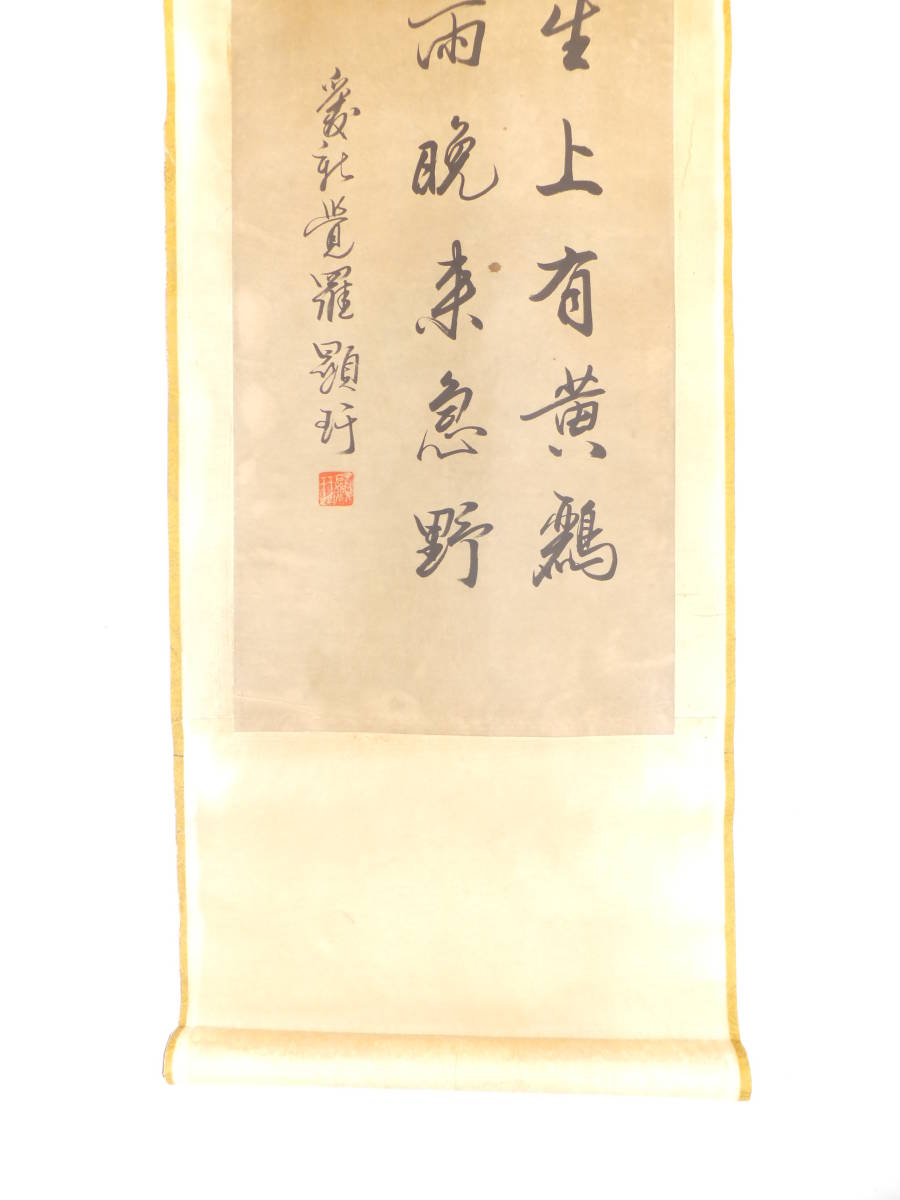 生上有黄鸝
雨晚来急野
愛新覺羅顯玗
顯玗